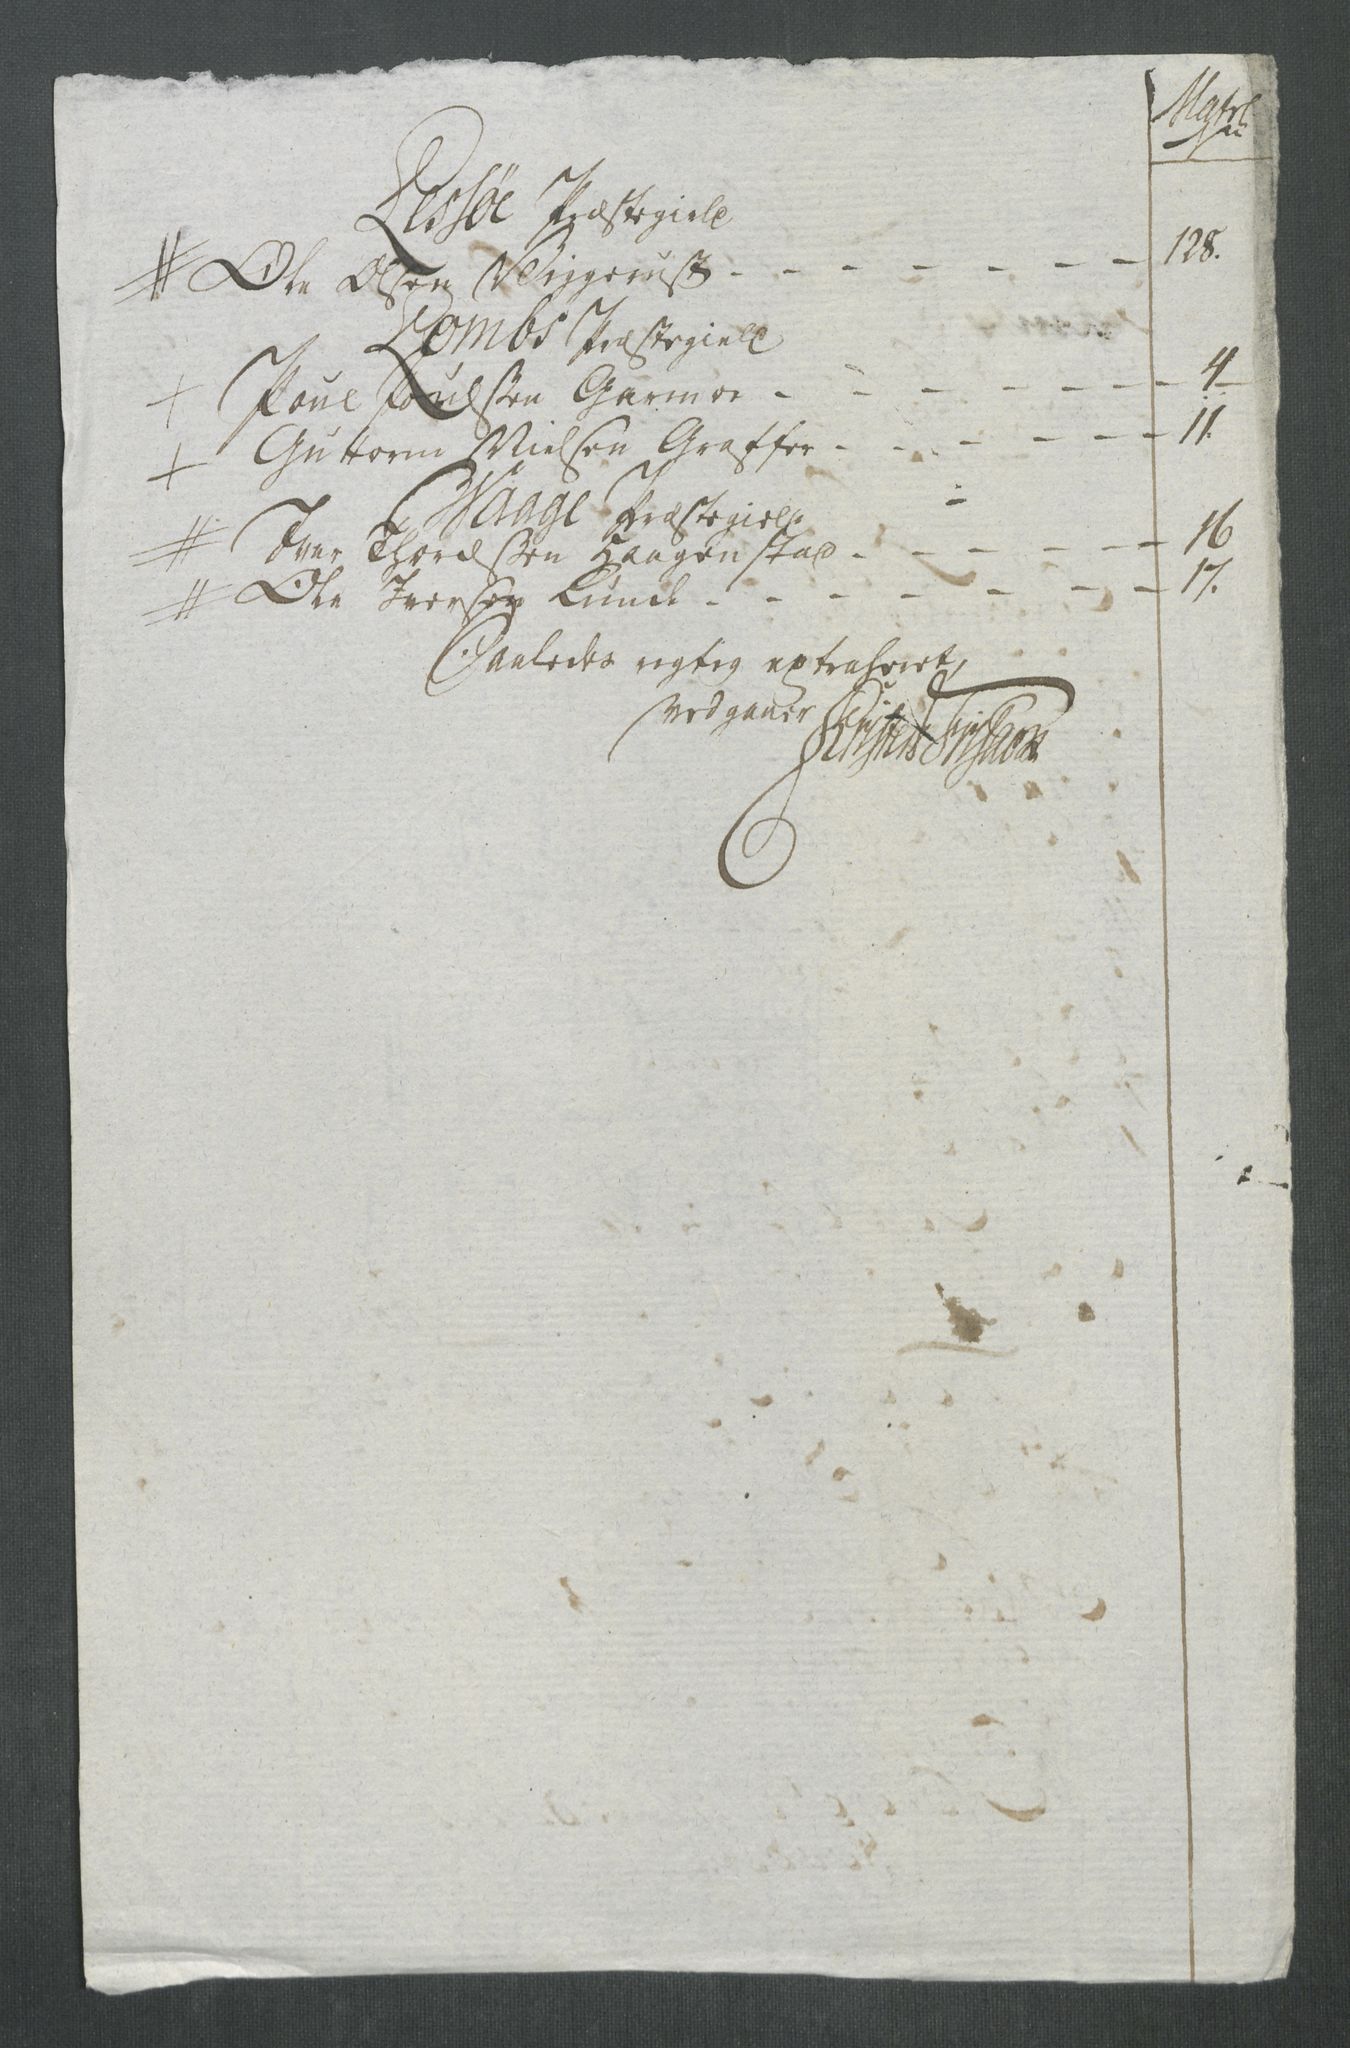 Matrl
Lessöe Præstegield
# Ole Olsen Wiggerust - - - - - - - 128.
Lombs Præstegield
+ Poul Poulssen Garmoe - - - - - - 4
+ Guttorm Nielsen Graffer - - - - - 11.
Waage Præstegield
# Iver Thordssen Haagenstad - - - - - 16
# Ole Iversen Lunde - - - - - - - 17.
Saaledes rigtig extraheret,